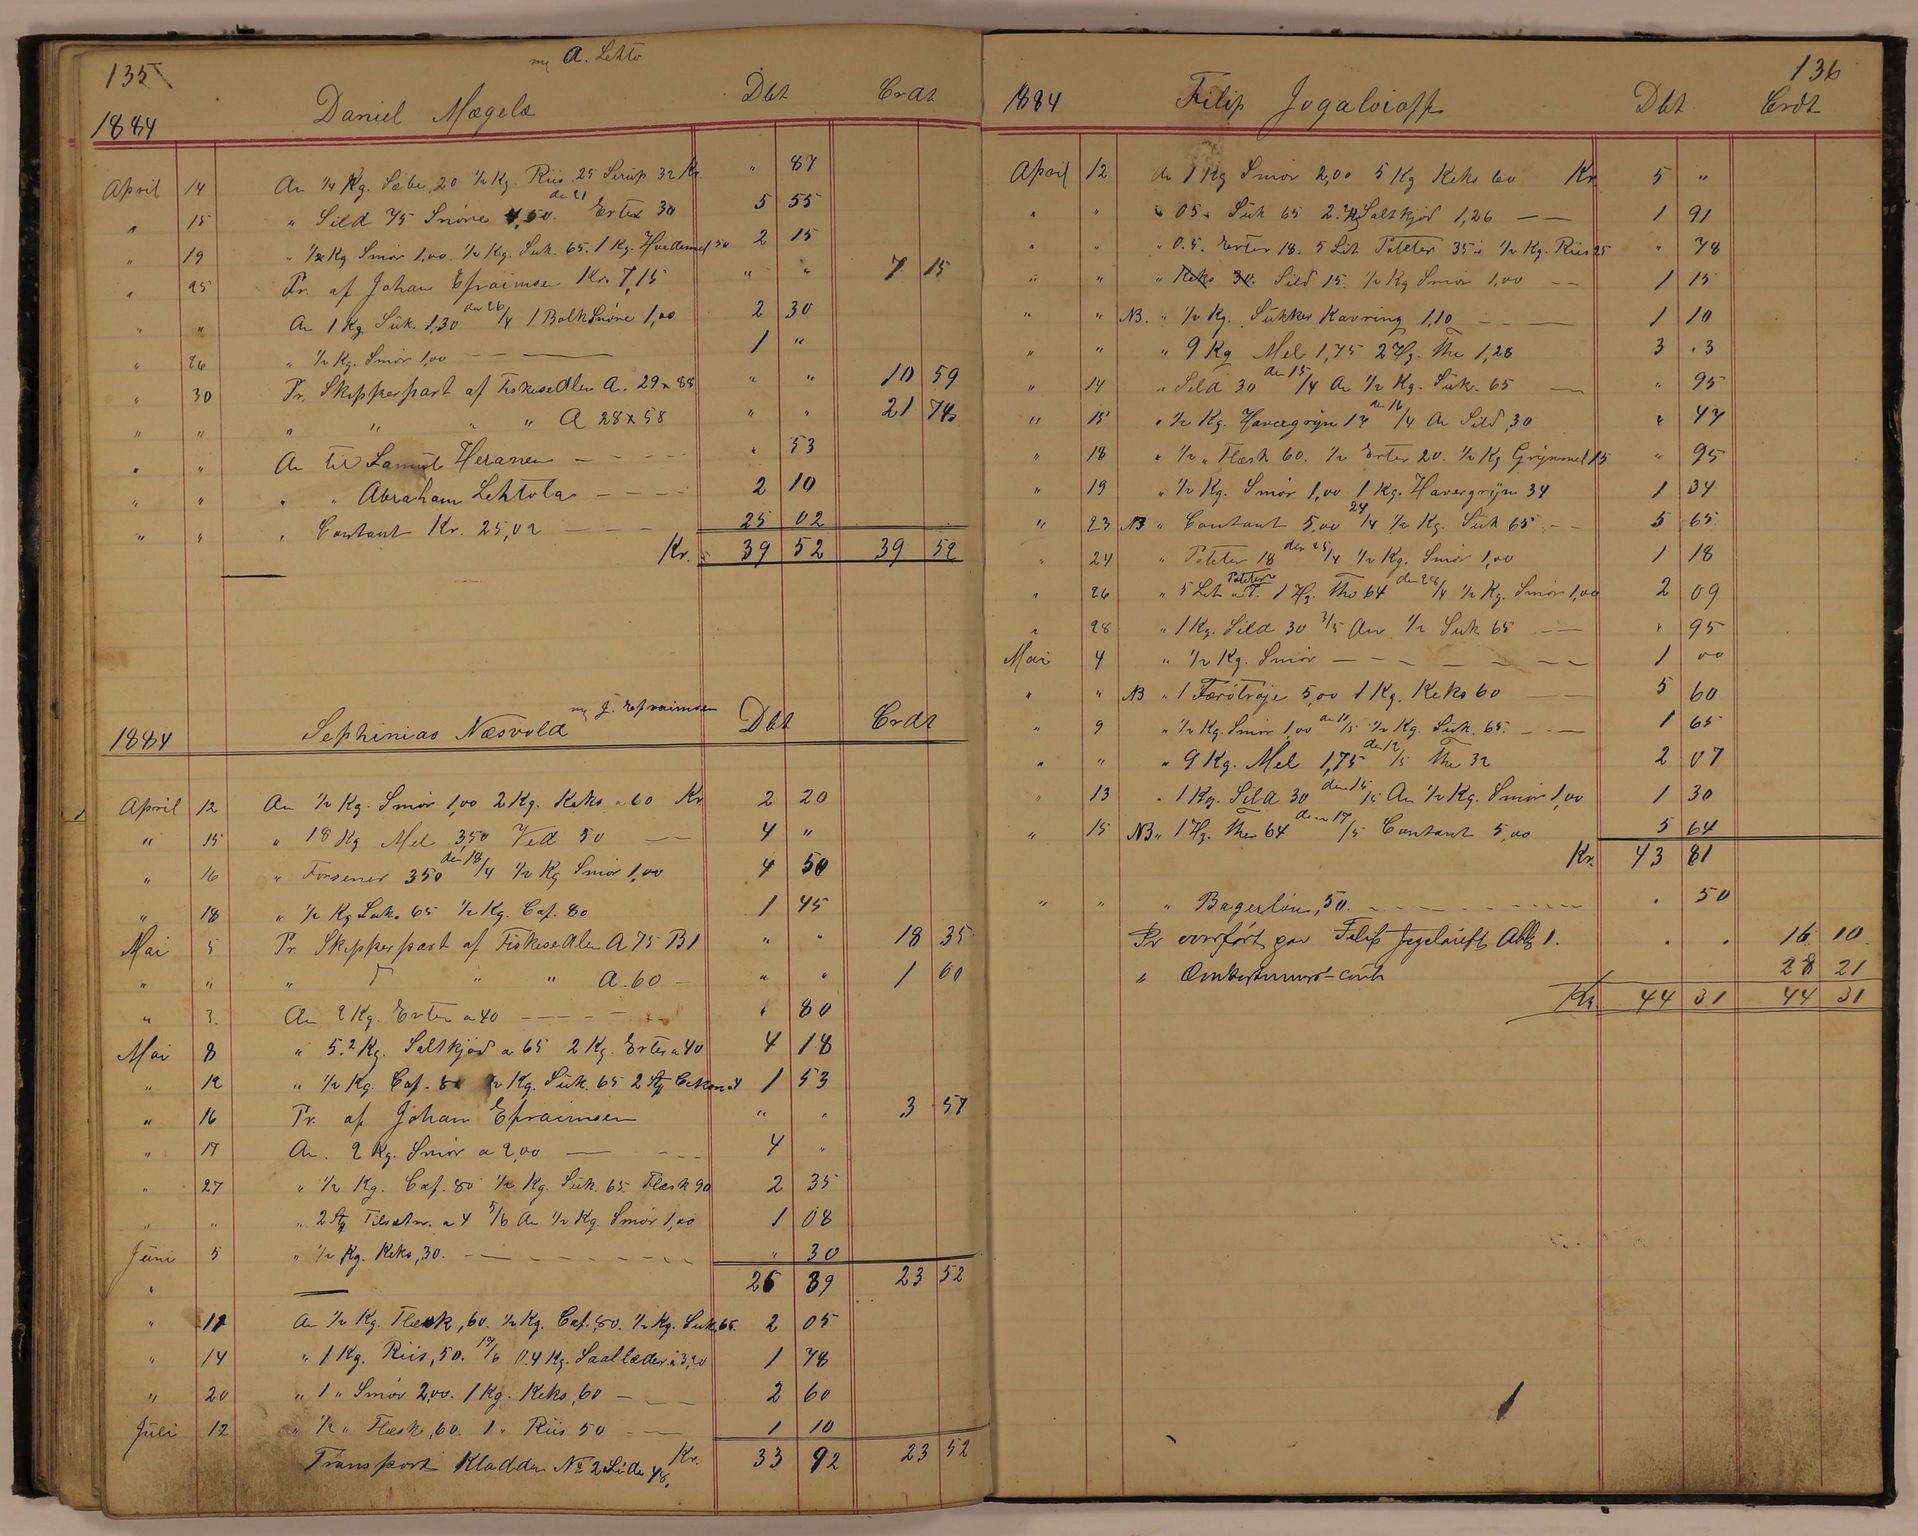 135
m/ A. Lehto
1884 Daniel Mægelæ Dbt Crdt
April 14 An 1/4 Kg. Sæbe, 20 1/2 Kg. Riis 25 Sirup 32 Kr. " 87
" 15 " Sild 75 Snøre 4,50. den 21 Erter 30 5 55
" 19 " 1/2 Kg Smør 1,00. 1/2 Kg. Suk. 65. 1 Kg. Hvedemel 50 2 15
" 25 Pr. af Johan Efraimsen Kr. 7,15 " " 7 15
" " An 1 Kg. Suk. 1,30 den 26/4 1 Bolk Snøre 1,00 2 30
" 26 " 1/2 Kg. Smør 1,00 — — 1 "
" 30 Pr. Skipperpart af Fiskesedlen A. 29 x 88 " " 10 59
" " " " " " A 28 x 58 " " 21 78
" " An til Samuel Heranen - - - - " 53
" " " " Abraham Lehtola - - - - 2 10
" " " Contant Kr. 25,02 - - - 25 02
Kr. 39 52 39 52
1884 Sephinias Næsvold m/ J. Efraimsen Dbt Crdt
April 12 An 1/2 Kg. Smør 1,00 2 Kg. Keks a 60 Kr 2 20
" 15 " 18 Kg Mel 3,50 Ved 50 — 4 "
" 16 " Forsener 350 den 18/4 1/2 Kg Smør 1,00 4 50
" 18 " 1/2 Kg Suk. 65 1/2 Kg. Caf. 80 1 45
Mai 5 Pr. Skipperpart af Fiskesedlen A 75 B 1 " " 18 35
" " " " " " A. 60 - " " 1 60
" 3. An 2 Kg. Erter a 40 - - - - " 80
Mai 8 " 5.2 Kg. Saltkjød a 65 2 Kg. Erter a 40 4 18
" 12 " 1/2 Kg. Caf. 80 1/2 Kg. Suk. 65 2 1 53
" 16 Pr. af Johan Efraimsen " " 3 57
" 17 An. 2 Kg. Smør a 2,00 — - - - 4 "
" 27 " 1/2 Kg. Caf. 80 1/2 Kg. Suk. 65. Flæsk 90 2 35
" " " 2 a 4 5/6 An 1/2 Kg. Smør 1,00 1 08
Juni 5 " 1/2 Kg. Keks, 30. - - - - " 30
" 26 89 23 52
" 11 An 1/2 Kg. Flæsk, 60. 1/2 Kg. Caf., 80. 1/2 Kg. Suk, 65. 2 05
" 14 " 1 Kg. Riis, 50. 17/6 0.4 Kg. Saallæder a 3,20 1 78
" 20 " 1 " Smør 2,00. 1 Kg. Keks, 60 - 2 60
Juli 12 " 1/2 " Flæsk, 60. 1 " Riis 50 1 10
Transport Kladden No 2 Side 48. Kr. 33 92 23 52
136
1884 Filip Jogaloioff Dbt Crdt
April 12 An 1 Kg Smør 2,00 5 Kg Keks 60 Kr 5 "
" " " 05 " Suk 65 2.1/2 Saltkjød 1,26 — 1 91
" " " 0.5. Erter 18. 5 Lit Poteter 35 1/2 Kg. Riis 25 " 78
" " " Keks 30. Sild 15. 1/2 Kg Smør 1,00 — 1 15
" " NB. " 1/2 Kg. Sukker Kavring 1,10 — 1 10
" " " 9 Kg Mel 1,75 2 Hg. The 1,28 3 . 3
" 14 " Sild 30 den 15/4 An 1/2 Kg. Suk. 65 — " 95
" 15 " 1/2 Kg. Havregryn 17 den 16/4 An Sild, 30 " 47
" 18 " 1/2 " Flæsk 60. 1/2 Erter 20. 1/2 Kg Grynmel 15 " 95
" 19 " 1/2 Kg. Smør 1,00 1 Kg. Havregryn 34 1 34
" 23 NB " Contant 5,00 24/4 1/2 Kg. Suk 65 — 5 65
" 24 " Poteter 18 den 25/4 1/2 Kg. Smør 1,00 1 18
" 26 " 5 Lit Poteter 1 Hg. The 64 den 28/4 1/2 Kg. Smør 1,00 2 09
" 28 " 1 Kg. Sild 30 3/5 An 1/2 Suk. 65 — " 95
Mai 4 " 1/2 Kg. Smør - - - - 1 00
" " NB " 1 Færøtrøje 5,00 1 Kg. Keks 60 — 5 60
" 9 " 1/2 Kg. Smør 1,00 den 11/5 1/2 Kg. Suk. 65. - 1 65
" " " 9 Kg. Mel 1,75 den 12/5 The 32 2 07
" 13 " 1 Kg. Sild 30 den 14/5 An 1/2 Kg. Smør 1,00 1 30
" 15 NB " 1 Hg. The 64 den 17/5 Contant 5,00 5 64
Kr. 43 81
" " " Bagerløn, 50. - - - - . 50
Pr overført paa Filip . . 16 10
" 28 21
Kr. 44 31 44 31